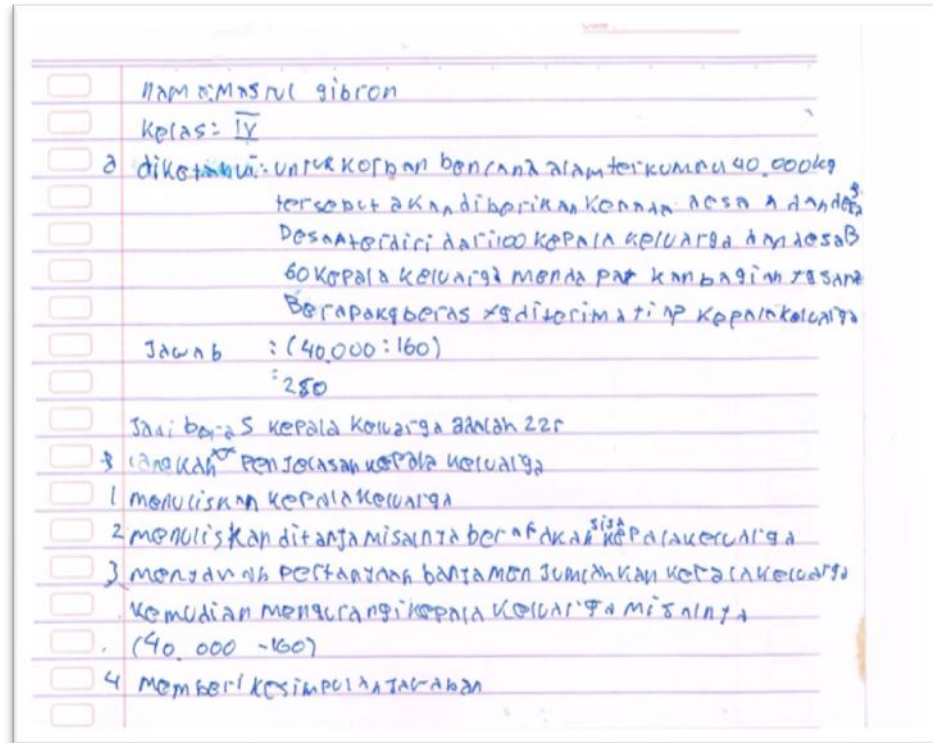 Nama: Masrul gibron
Kelas: IV
a diketahui: untuk korban bencana alam terkumpu 40.000kg
tersebut akan diberikan kepada desa A dan desa B
Desa A terdiri dari 100 kepala keluarga dan desa B
60 kepala keluarga mendapatkan bagian yg sama
Berapa kg beras yg diterima tiap kepala keluarga
Jawab : (40.000 : 160)
: 280
Jadi beras kepala keluarga adalah 225
langkah penjelasan kepala keluarga
1 menuliskan kepala keluarga
2 menuliskan ditanya misalnya berapakah sisa kepala keluarga
3 menjawab pertanyaan menjumlahkan kepala keluarga
kemudian mengurangi kepala keluarga misalnya
(40.000 - 160)
4 memberi kesimpulan jawaban